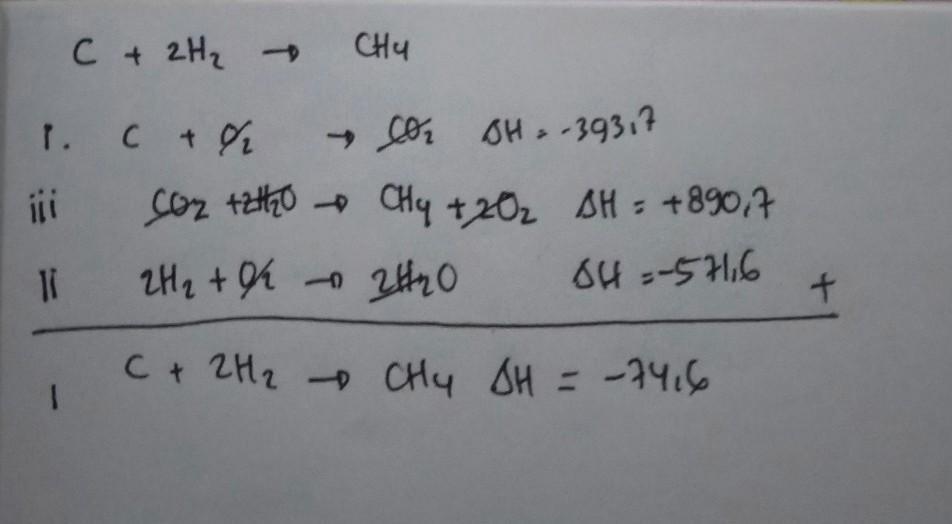 C + 2H₂ → CH4
I. C + O₂ → CO₂ ΔH = -393,7
iii CO₂ + 2H₂O → CH4 + 2O₂ ΔH = +890,7
II 2H₂ + O₂ → 2H₂O ΔH = -571,6 +
I C + 2H₂ → CH4 ΔH = -74,6